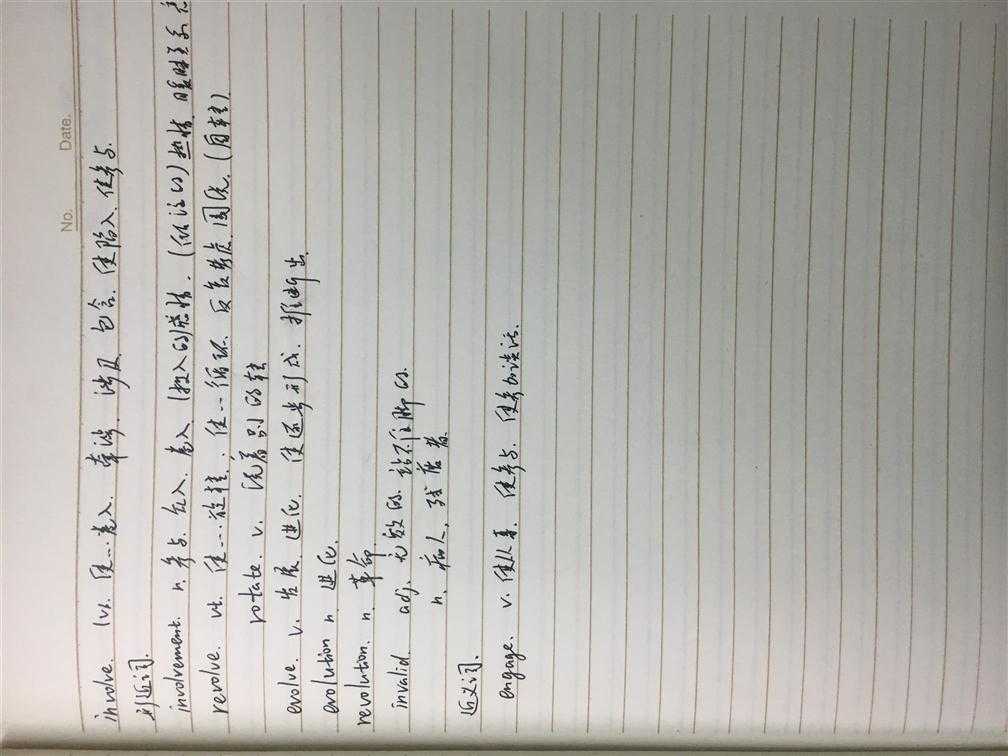 No.
Date.
involve. vt. 使…卷入. 牵涉. 涉及. 包含. 使陷入. 使参与.
形近词.
involvement. n. 参与. 包入. 卷入. 投入的感情. 热情. 暧昧关系
revolve. vt. 使…旋转. 使…循环. 反复考虑. 围绕. (自转)
rotate. v. 绕着别的转
evolve. v. 发展. 进化. 使逐步形成. 推断出
evolution n 进化.
revolution. n. 革命.
invalid. adj. 无效的. 站不住脚的.
n. 病人, 残废者.
近义词.
engage. v. 使从事. 使参与. 使参加谈话.